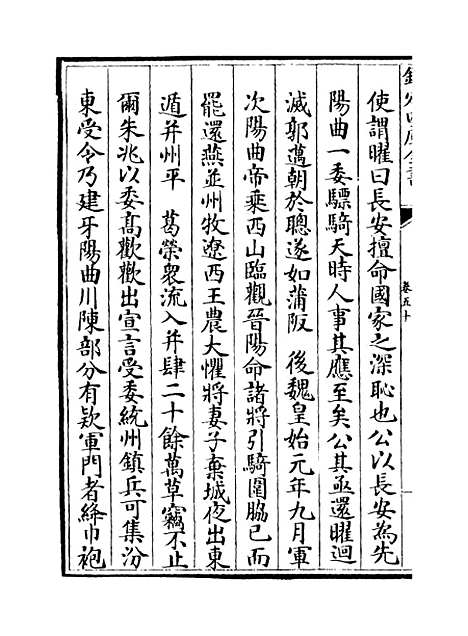 欽定四庫全書
卷五十
使謂曜曰長安擅命國家之深恥也公以長安為先
陽曲一委驃騎天時人事其應至矣公其亟還曜迴
滅郭邁朝於聰遂如蒲阪　後魏皇始元年九月軍
次陽曲帝乘西山臨觀晉陽命諸將引騎圍脇已而
罷還燕並州牧遼西王農大懼將妻子棄城夜出東
遁并州平　葛榮衆流入并肆二十餘萬草竊不止
爾朱兆以委髙歡歡出宣言受委統州鎮兵可集汾
東受令乃建牙陽曲川陳部分有欵軍門者絳巾袍